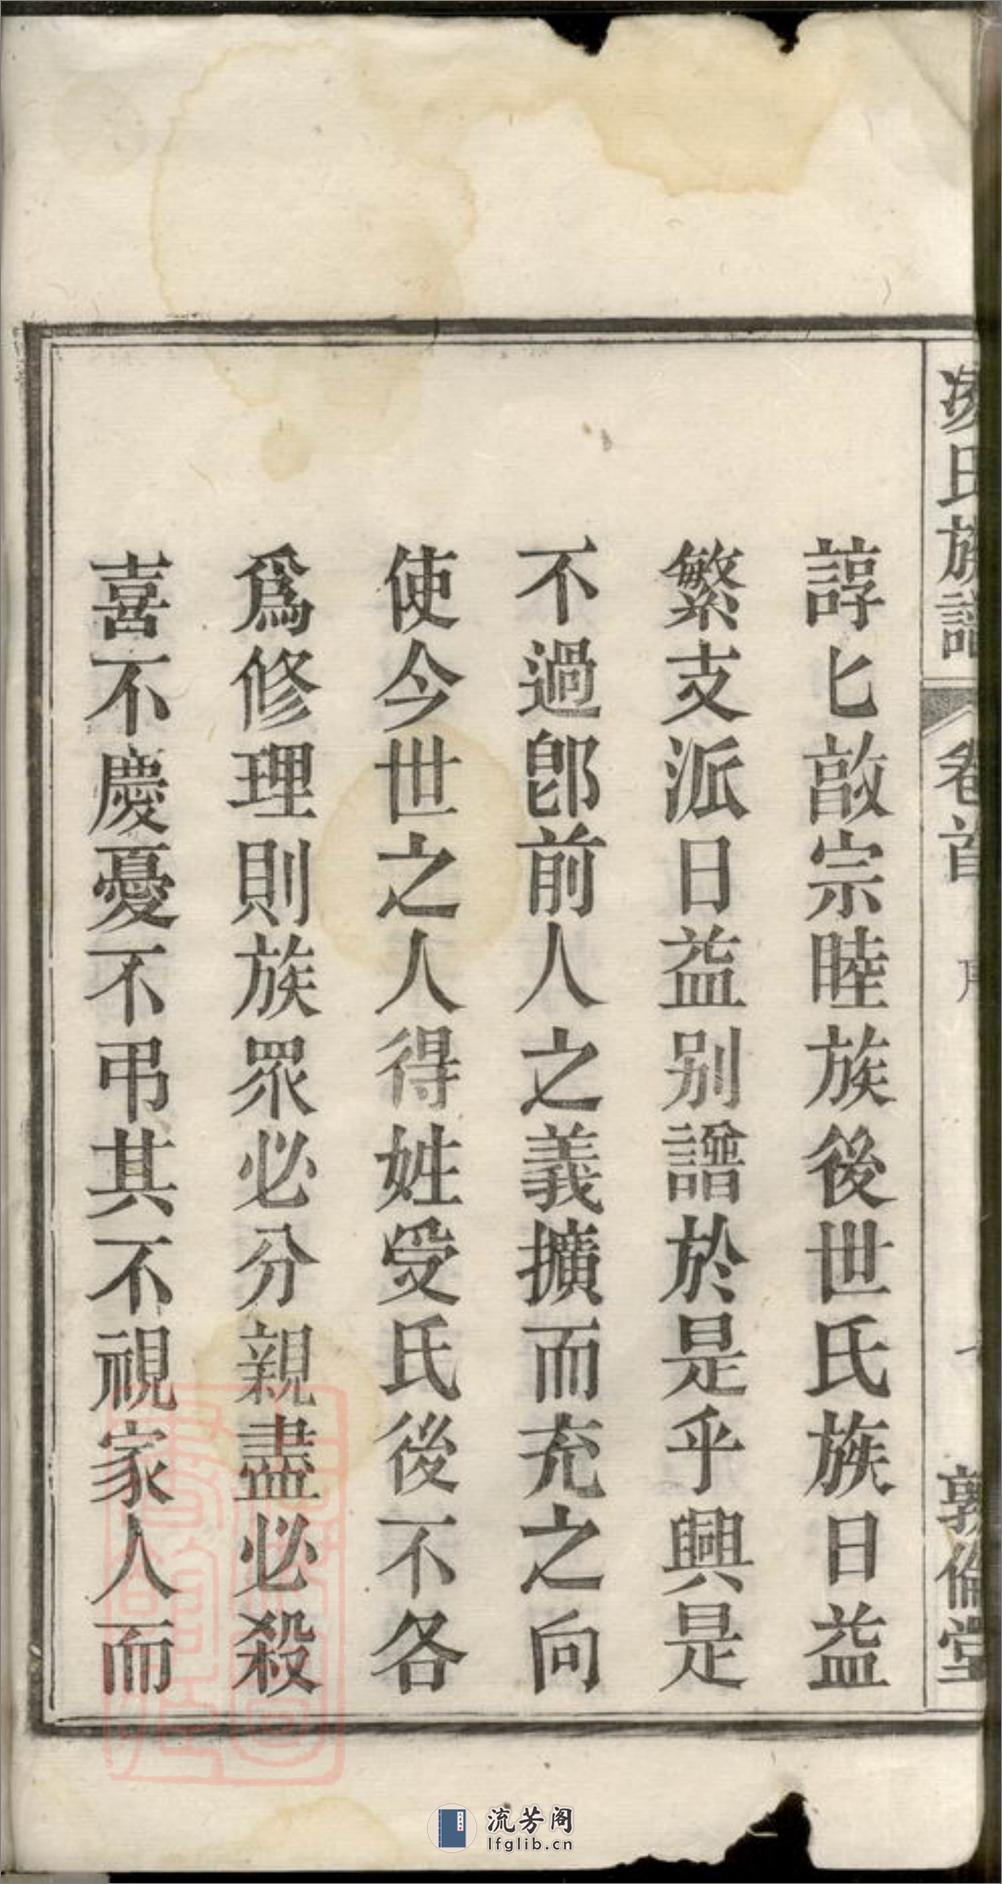 氏族譜
卷首
序
敦倫堂
諄匕敦宗睦族後世氏族日益
繁支派日益别譜於是乎興是
不過卽前人之義擴而充之向
使今世之人得姓受氏後不各
爲修理則族眾必分親盡必殺
喜不慶憂不弔其不視家人而
流芳阁
lfglib.cn